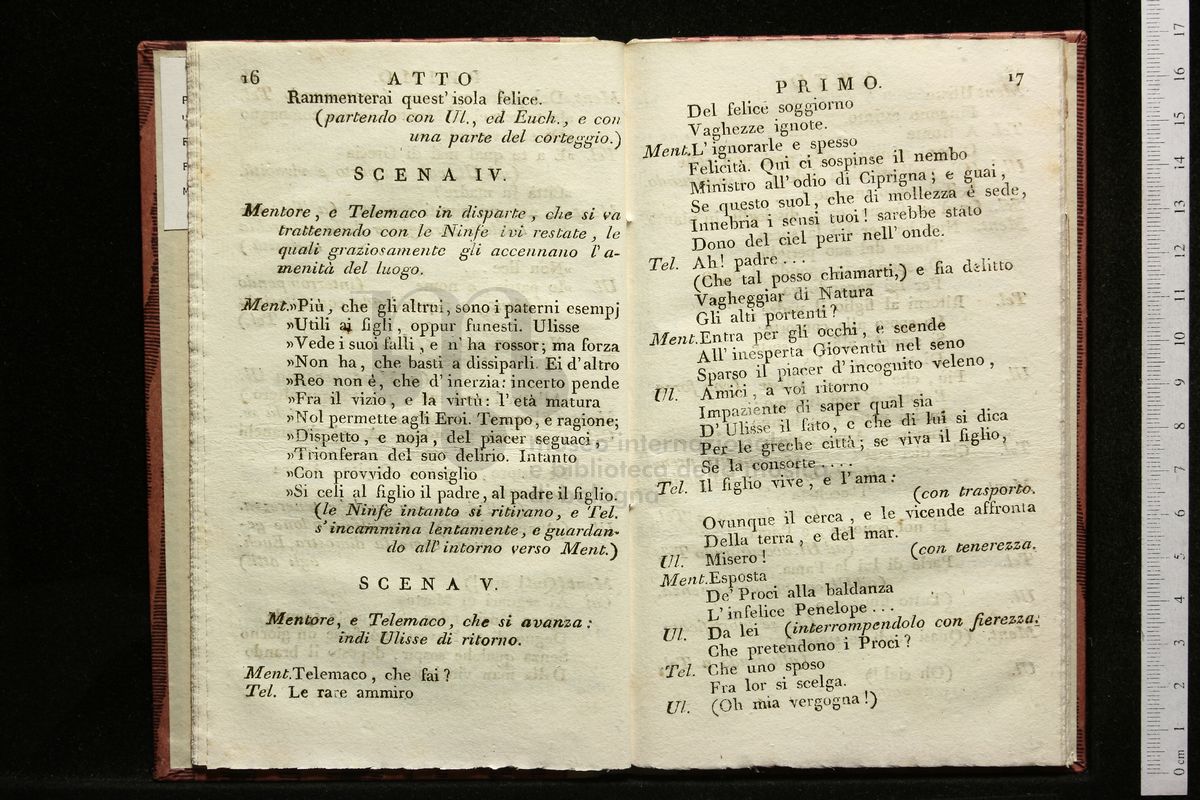 16 ATTO
Rammenterai quest' isola felice.
(partendo con Ul., ed Euch., e con
una parte del corteggio.)
SCENA IV.
Mentore, e Telemaco in disparte, che si va
trattenendo con le Ninfe ivi restate, le
quali graziosamente gli accennano l' a-
menità del luogo.
Ment.»Più, che gli altrui, sono i paterni esempj
»Utili ai figli, oppur funesti. Ulisse
»Vede i suoi falli, e n' ha rossor; ma forza
»Non ha, che basti a dissiparli. Ei d' altro
»Reo non é, che d' inerzia: incerto pende
»Fra il vizio, e la virtù: l' età matura
»Nol permette agli Eroi. Tempo, e ragione;
»Dispetto, e noja, del piacer seguaci,
»Trionferan del suo delirio. Intanto
»Con provvido consiglio
»Si celi al figlio il padre, al padre il figlio.
(le Ninfe intanto si ritirano, e Tel.
s' incammina lentamente, e guardan-
do all' intorno verso Ment.)
SCENA V.
Mentore, e Telemaco, che si avanza:
indi Ulisse di ritorno.
Ment.Telemaco, che fai?
Tel. Le rare ammiro
PRIMO. 17
Del felice soggiorno
Vaghezze ignote.
Ment.L' ignorarle e spesso
Felicità. Qui ci sospinse il nembo
Ministro all' odio di Ciprigna; e guai,
Se questo suol, che di mollezza è sede,
Innebria i sensi tuoi! sarebbe stato
Dono del ciel perir nell' onde.
Tel. Ah! padre...
(Che tal posso chiamarti,) e fia delitto
Vagheggiar di Natura
Gli alti portenti?
Ment.Entra per gli occhi, e scende
All' inesperta Gioventù nel seno
Sparso il piacer d' incognito veleno,
Ul. Amici, a voi ritorno
Impaziente di saper qual sia
D' Ulisse il fato, e che di lui si dica
Per le greche città; se viva il figlio,
Se la consorte ...
Tel. Il figlio vive, e l' ama:
(con trasporto.
Ovunque il cerca, e le vicende affronta
Della terra, e del mar.
Ul. Misero! (con tenerezza.
Ment.Esposta
De' Proci alla baldanza
L' infelice Penelope ...
Ul. Da lei (interrompendolo con fierezza.
Che pretendono i Proci?
Tel. Che uno sposo
Fra lor si scelga.
Ul. (Oh mia vergogna!)